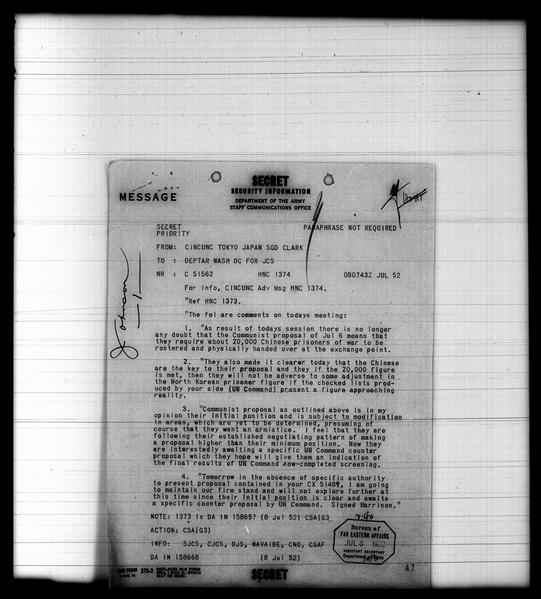 SECRET
SECURITY INFORMATION
MESSAGE
DEPARTMENT OF THE ARMY
STAFF COMMUNICATIONS OFFICE
SECRET
PARAPHRASE NOT REQUIRED
PRIORITY
FROM: CINCUNC TOKYO JAPAN SGD CLARK
TO : DEPTAR WASH DC FOR JCS
NR : C 51562 HNC 1374 080743Z JUL 52
For Info, CINCUNC Adv Msg HNC 1374.
"Ref HNC 1373.
"The fol are comments on todays meeting:
1. "As result of todays session there is no longer
any doubt that the Communist proposal of Jul 6 means that
they require about 20,000 Chinese prisoners of war to be
rostered and physically handed over at the exchange point.
2. "They also made it clearer today that the Chinese
are the key to their proposal and they if the 20,000 figure
is met, then they will not be adverse to some adjustment in
the North Korean prisoner figure if the checked lists prod-
uced by your side (UN Command) present a figure approaching
reality.
3. "Communist proposal as outlined above is in my
opinion their initial position and is subject to modification
in areas, which are yet to be determined, presuming of
course that they want an armistice. I feel that they are
following their established negotiating pattern of making
a proposal higher than their minimum position. Now they
are interestedly awaiting a specific UN Command counter
proposal which they hope will give them an indication of
the final results of UN Command now-completed screening.
4. "Tomorrow in the absence of specific authority
to present proposal contained in your CX 51489, I am going
to maintain our firm stand and will not explore further at
this time since their initial position is clear and awaits
a specific counter proposal by UN Command. Signed Harrison."
NOTE: 1373 is DA IN 158657 (8 Jul 52) CSA(G3)
ACTION: CSA(G3)
INFO: SJCS, CJCS, DJS, NAVAIDE, CNO, CSAF
DA IN 158668 (8 Jul 52)
Bureau of
FAR EASTERN AFFAIRS
JUL 8 1952
ASSISTANT SECRETARY
Department of State
Johnson
FORM 375-3
REPLACES OCS FORM
MAY BE USED.
SECRET
47